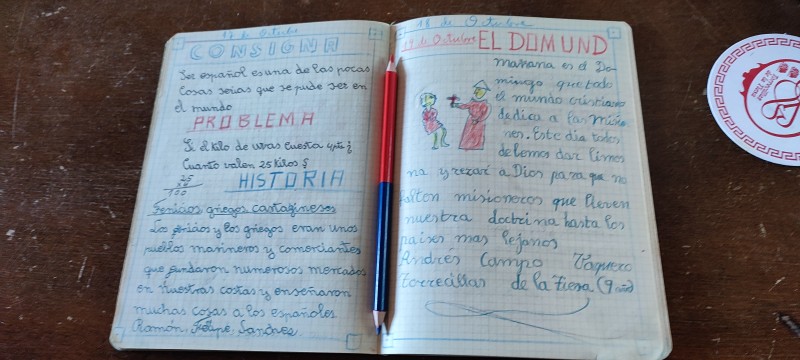 17 de Octubre
CONSIGNA
Ser español es una de las pocas
cosas serias que se pude ser en
el mundo
PROBLEMA
Si el kilo de uvas cuesta 4 pts ¿
Cuanto valen 25 kilos?
25
x4
100
HISTORIA
Fenicios griegos cartagineses
Los fenicios y los griegos eran unos
pueblos marineros y comerciantes
que fundaron numerosos mercados
en nuestras costas y enseñaron
muchas cosas a los españoles
Ramón, Felipe, Sandres
18 de Octubre
19 de Octubre EL DOMUND
mañana es el Do-
mingo que todo
el mundo cristiano
dedica a las misio
nes. Este dia todos
debemos dar limos
na y rezar a Dios para que no
falten misioneros que lleven
nuestra doctrina hasta los
paises mas lejanos
Andrés Campo Vaquero
Torrecillas de la Tiesa (9 años)